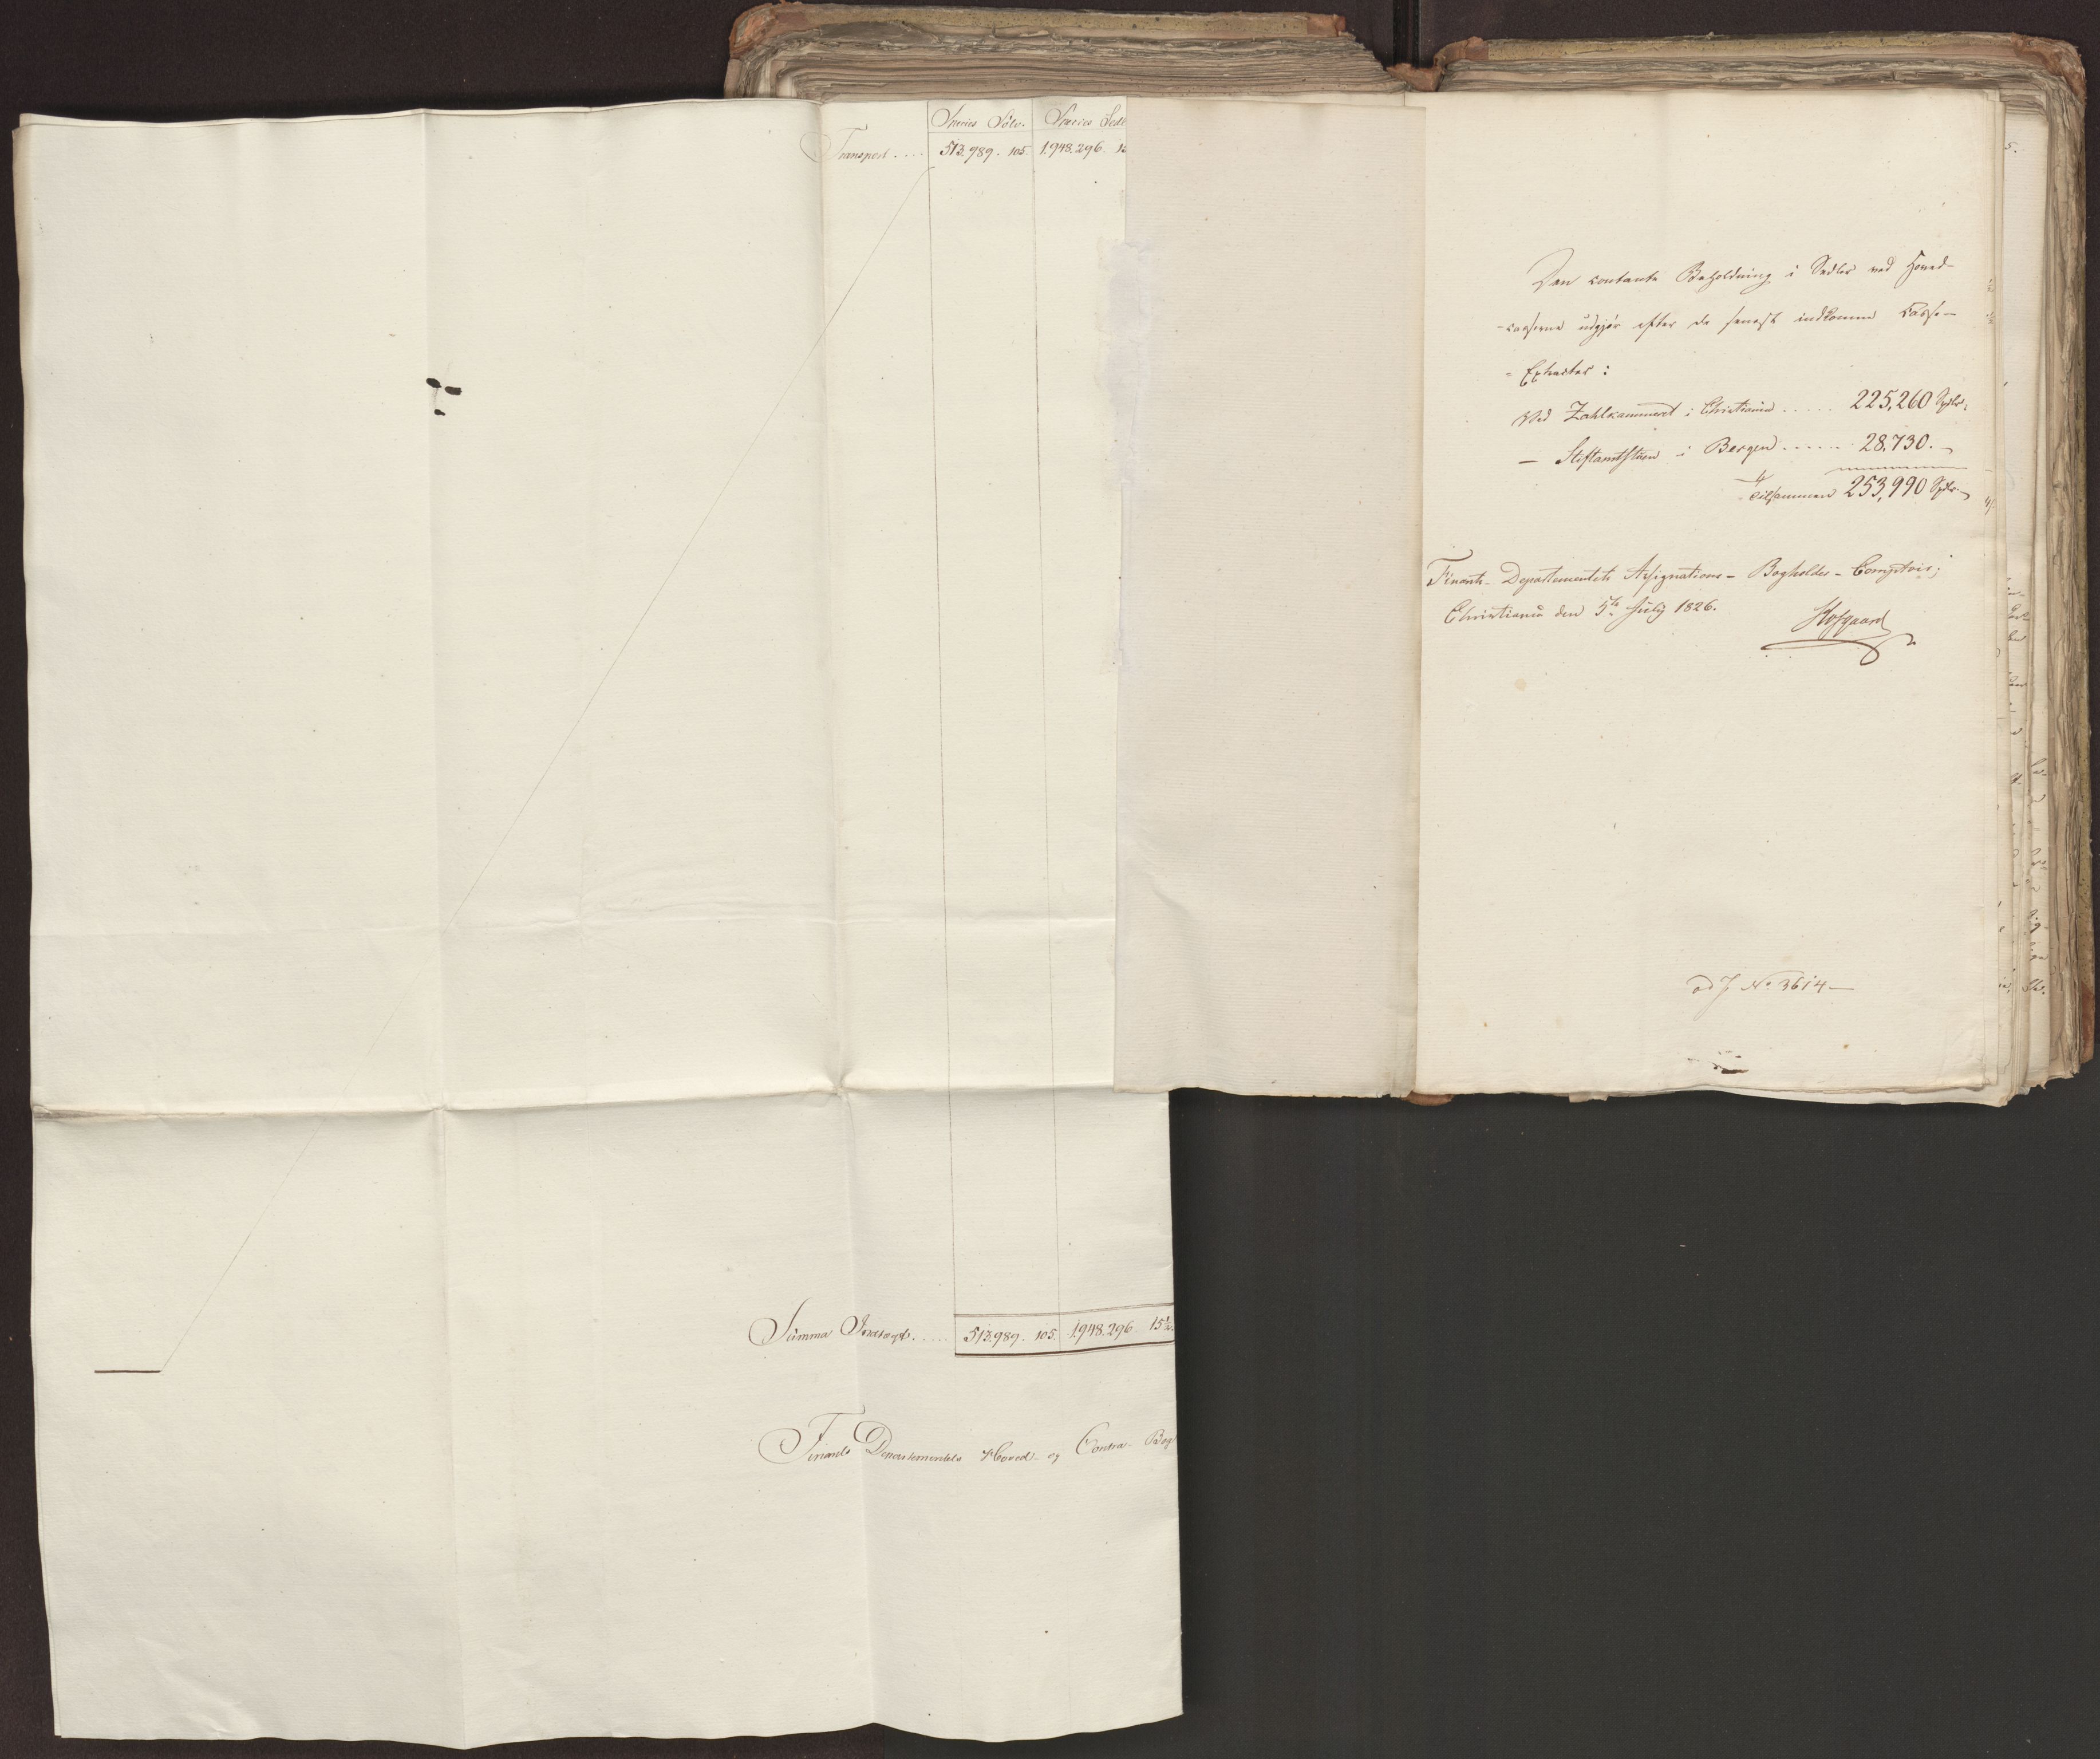 Species Sölv. Species Sedl
Transport .... 513,989. 105 1,948,296. 15
Summa Indtægt ..... 513,989. 105. 1,948,296. 15½
Finants Departementets Hoved- og Contra- Bog
Den contante Beholdning i Sedler ved Hoved-
-casserne udgjør efter de senest indkomne Casse-
- Extracter:
Ved Zahlkammeret i Christiania ..... 225,260 Spdlr;
— Stiftamtstuen i Bergen ...... 28,730. -
Tilsammen 253,990 Spdlr.
Finants- Departementets Assignations- Bogholder- Comptoir;
Christiania den 5te July 1826.
Hofgaard
ad J No 3614 —